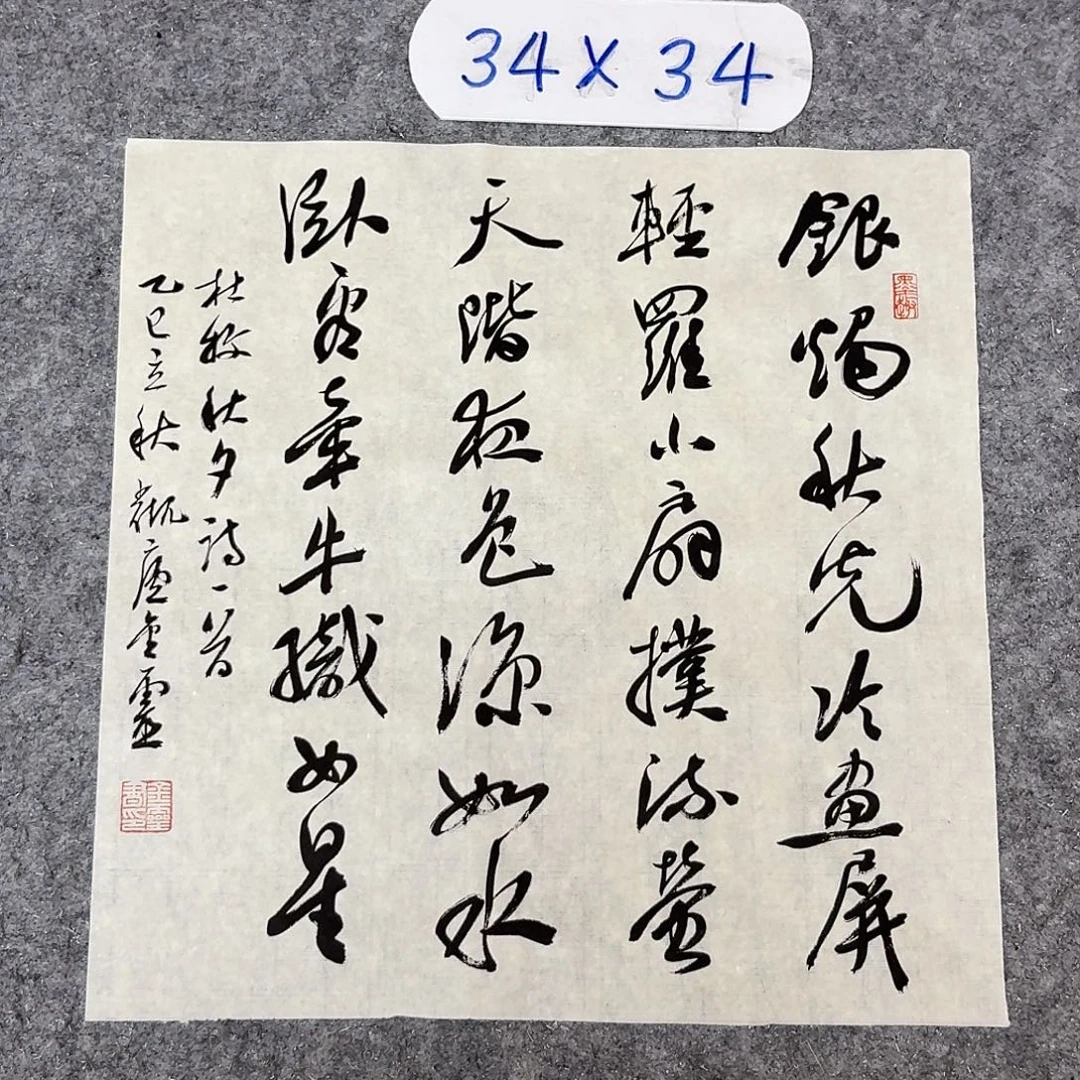 34×34
銀燭秋光冷畫屏
輕羅小扇撲流螢
天階夜色涼如水
臥看牽牛織女星
杜牧秋夕詩一首
乙巳立秋